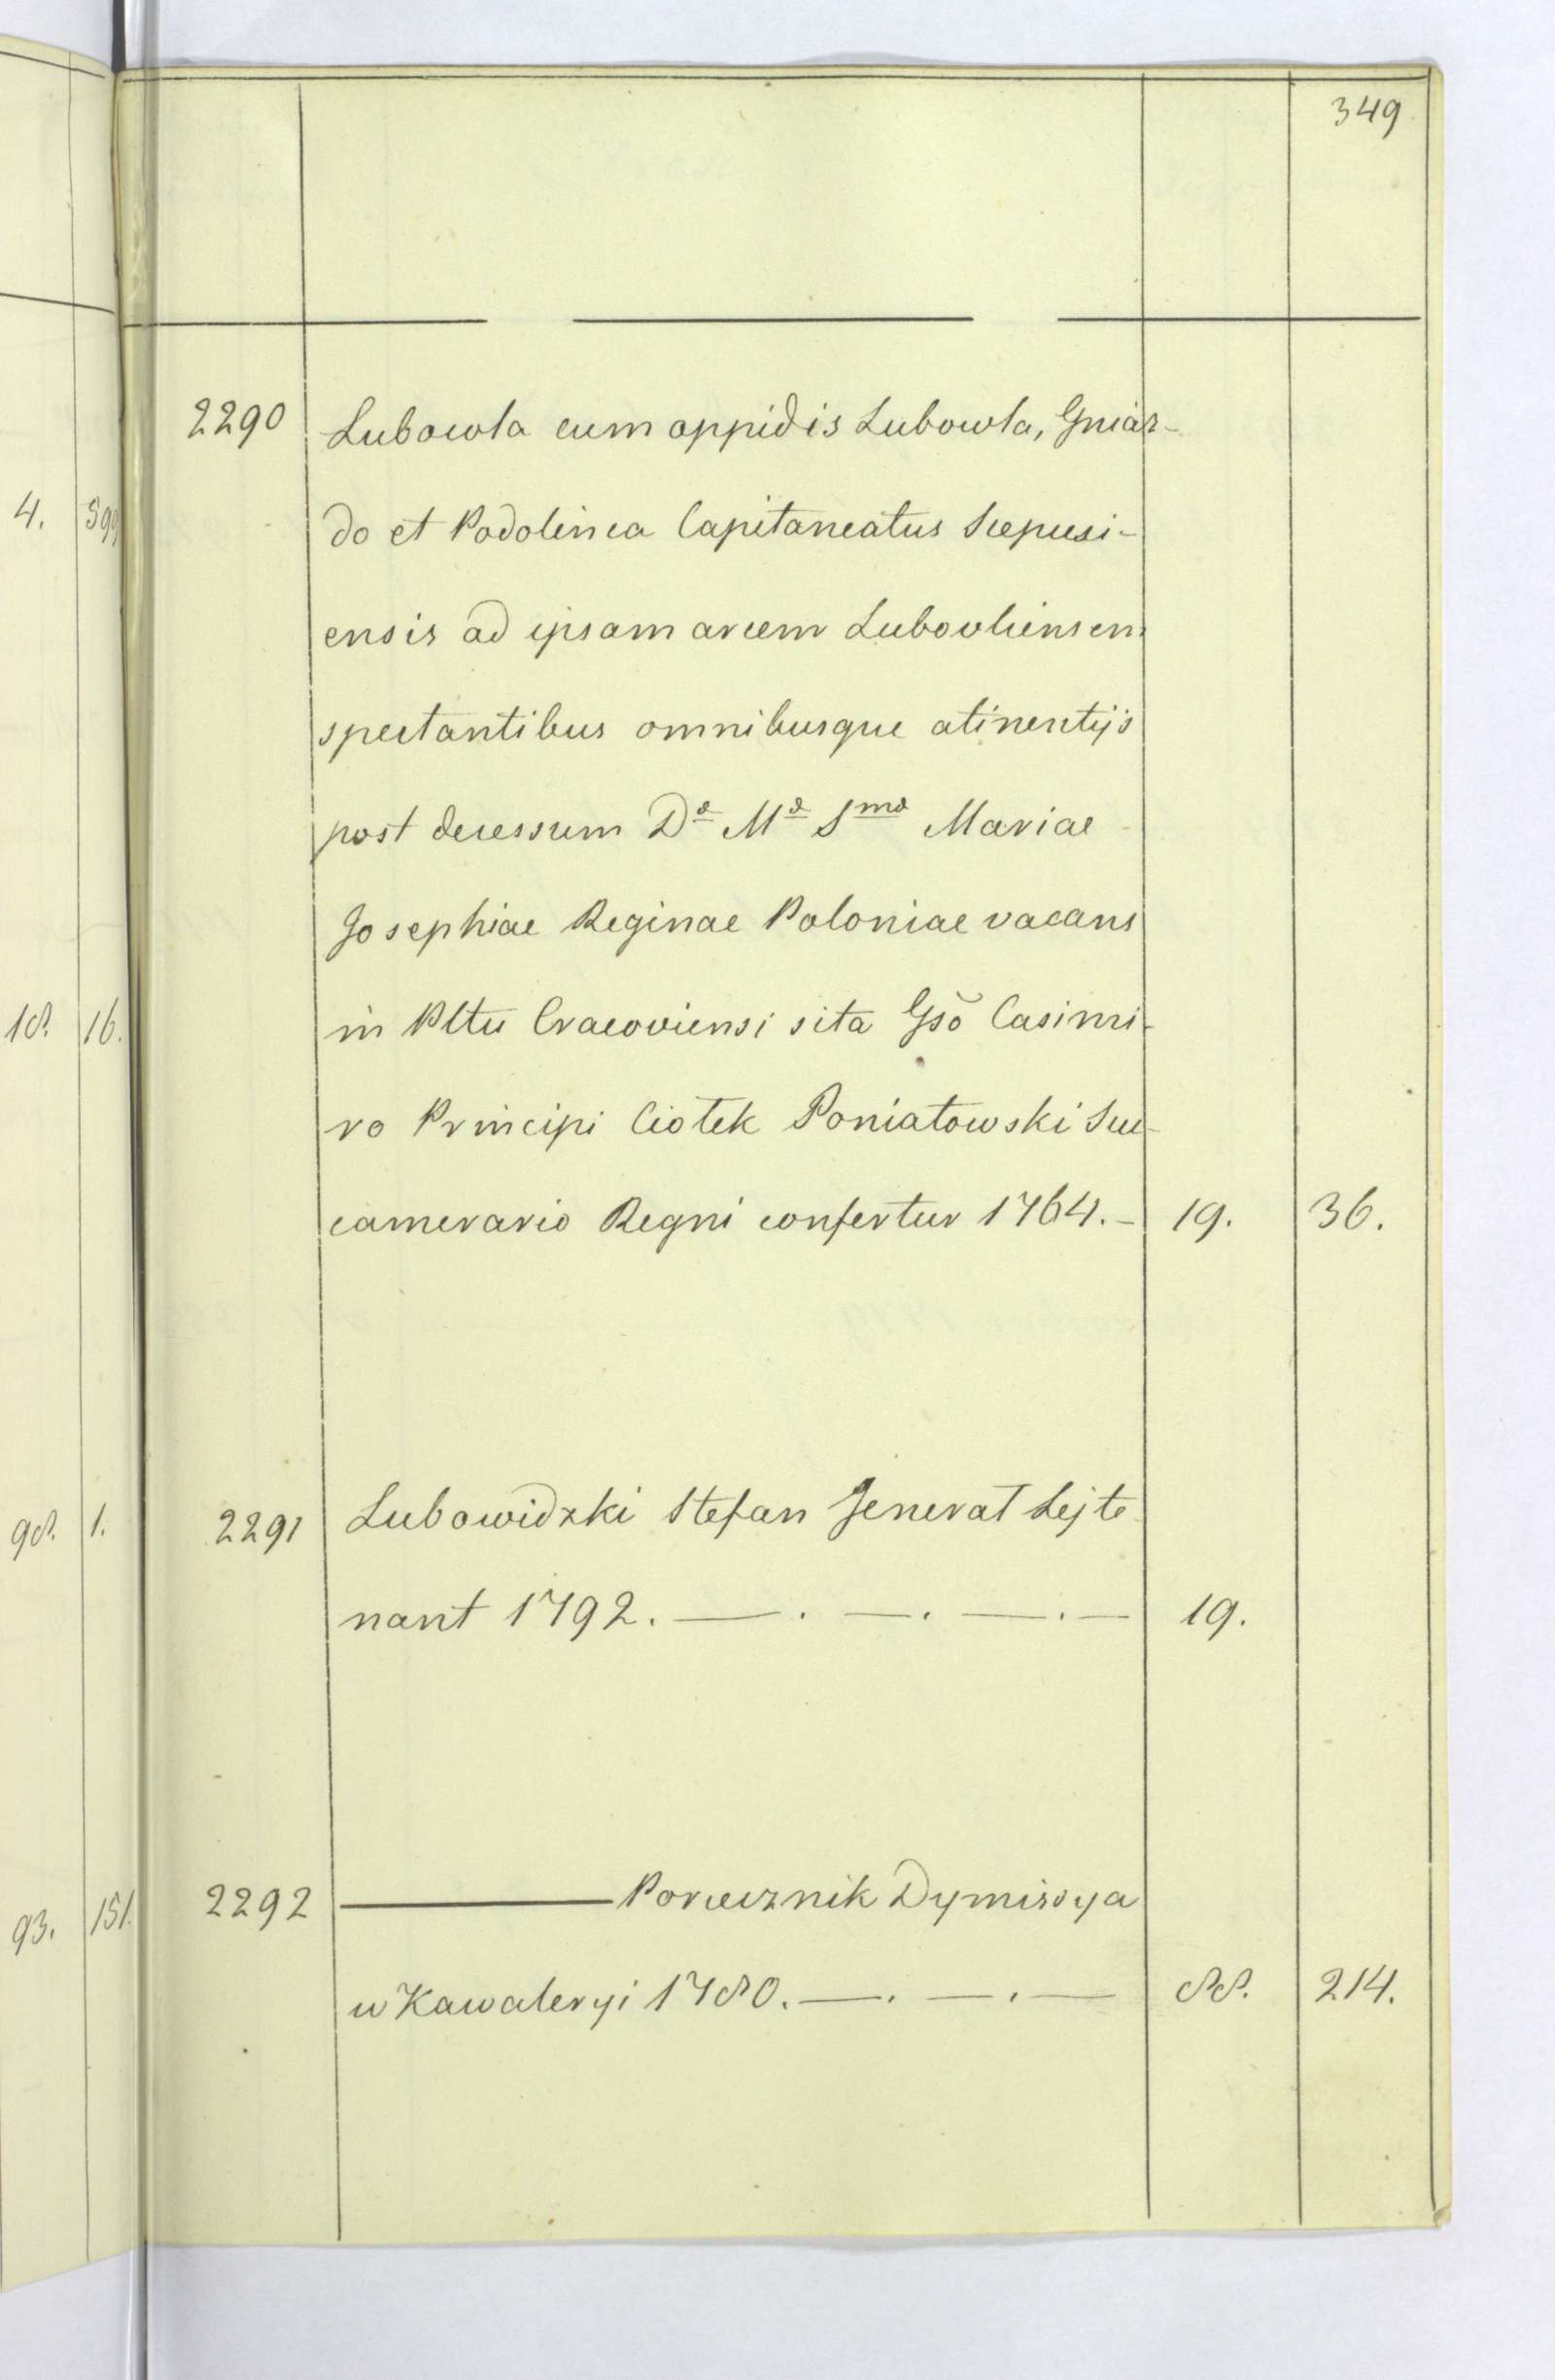 349
2290 Lubowla cum oppidis Lubowla, Gniaz-
do et Podolinca Capitaneatus Scepusi-
ensis ad ipsam arcem Lubovliensem
spectantibus omnibusque atinentijs
post decessum Dᵃ Mᵃ Sᵐᵃ Mariae
Josephiae Reginae Poloniae vacans
in Pltu Cracoviensi sita Gsõ Casimi-
ro Principi Ciołek Poniatowski Suc-
camerario Regni confertur 1764. – 19. 36.
2291 Lubowidzki Stefan Jenerał Lejte
nant 1792. —. —. —. — 19.
2292 ——— Porucznik Dymissya
w Kawaleryi 1780. —. —. — 88. 214.
4. 599
18. 16.
98. 1.
93. 151.